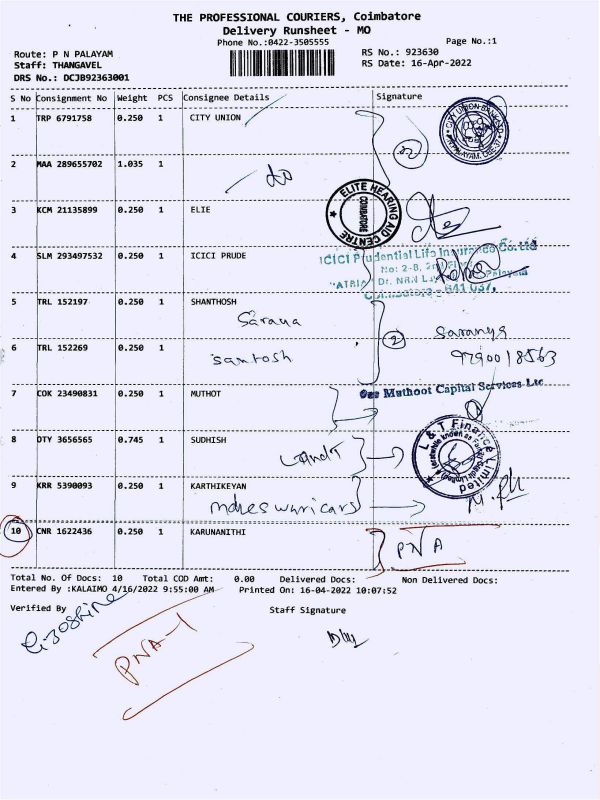 THE PROFESSIONAL COURIERS, Coimbatore
Delivery Runsheet - MO
Phone No.:0422-3505555
Page No.:1
Route: P N PALAYAM
RS No.: 923630
Staff: THANGAVEL
RS Date: 16-Apr-2022
DRS No.: DCJB92363001
S No Consignment No Weight PCS Consignee Details Signature
1 TRP 6791758 0.250 1 CITY UNION
CITY UNION BANK
2 MAA 289655702 1.035 1
do
3 KCM 21135899 0.250 1 ELIE
ELITE HEARING AID CENTRE
COIMBATORE
4 SLM 293497532 0.250 1 ICICI PRUDE
ICICI Prudential Life Insurance Co. Ltd
No: 2-8, 2nd
Dr. NRN
Coimbatore - 641 037.
5 TRL 152197 0.250 1 SHANTHOSH
Sarana
2
Saranya
9790018563
6 TRL 152269 0.250 1
santosh
7 COK 23490831 0.250 1 MUTHOT
Muthoot Capital Services Ltd
8 OTY 3656565 0.745 1 SUDHISH
LandT
L & T Finance Limited
9 KRR 5390093 0.250 1 KARTHIKEYAN
10 CNR 1622436 0.250 1 KARUNANITHI
PNA
Total No. Of Docs: 10 Total COD Amt: 0.00 Delivered Docs: Non Delivered Docs:
Entered By :KALAIMO 4/16/2022 9:55:00 AM Printed On: 16-04-2022 10:07:52
Verified By Staff Signature
PNA-1